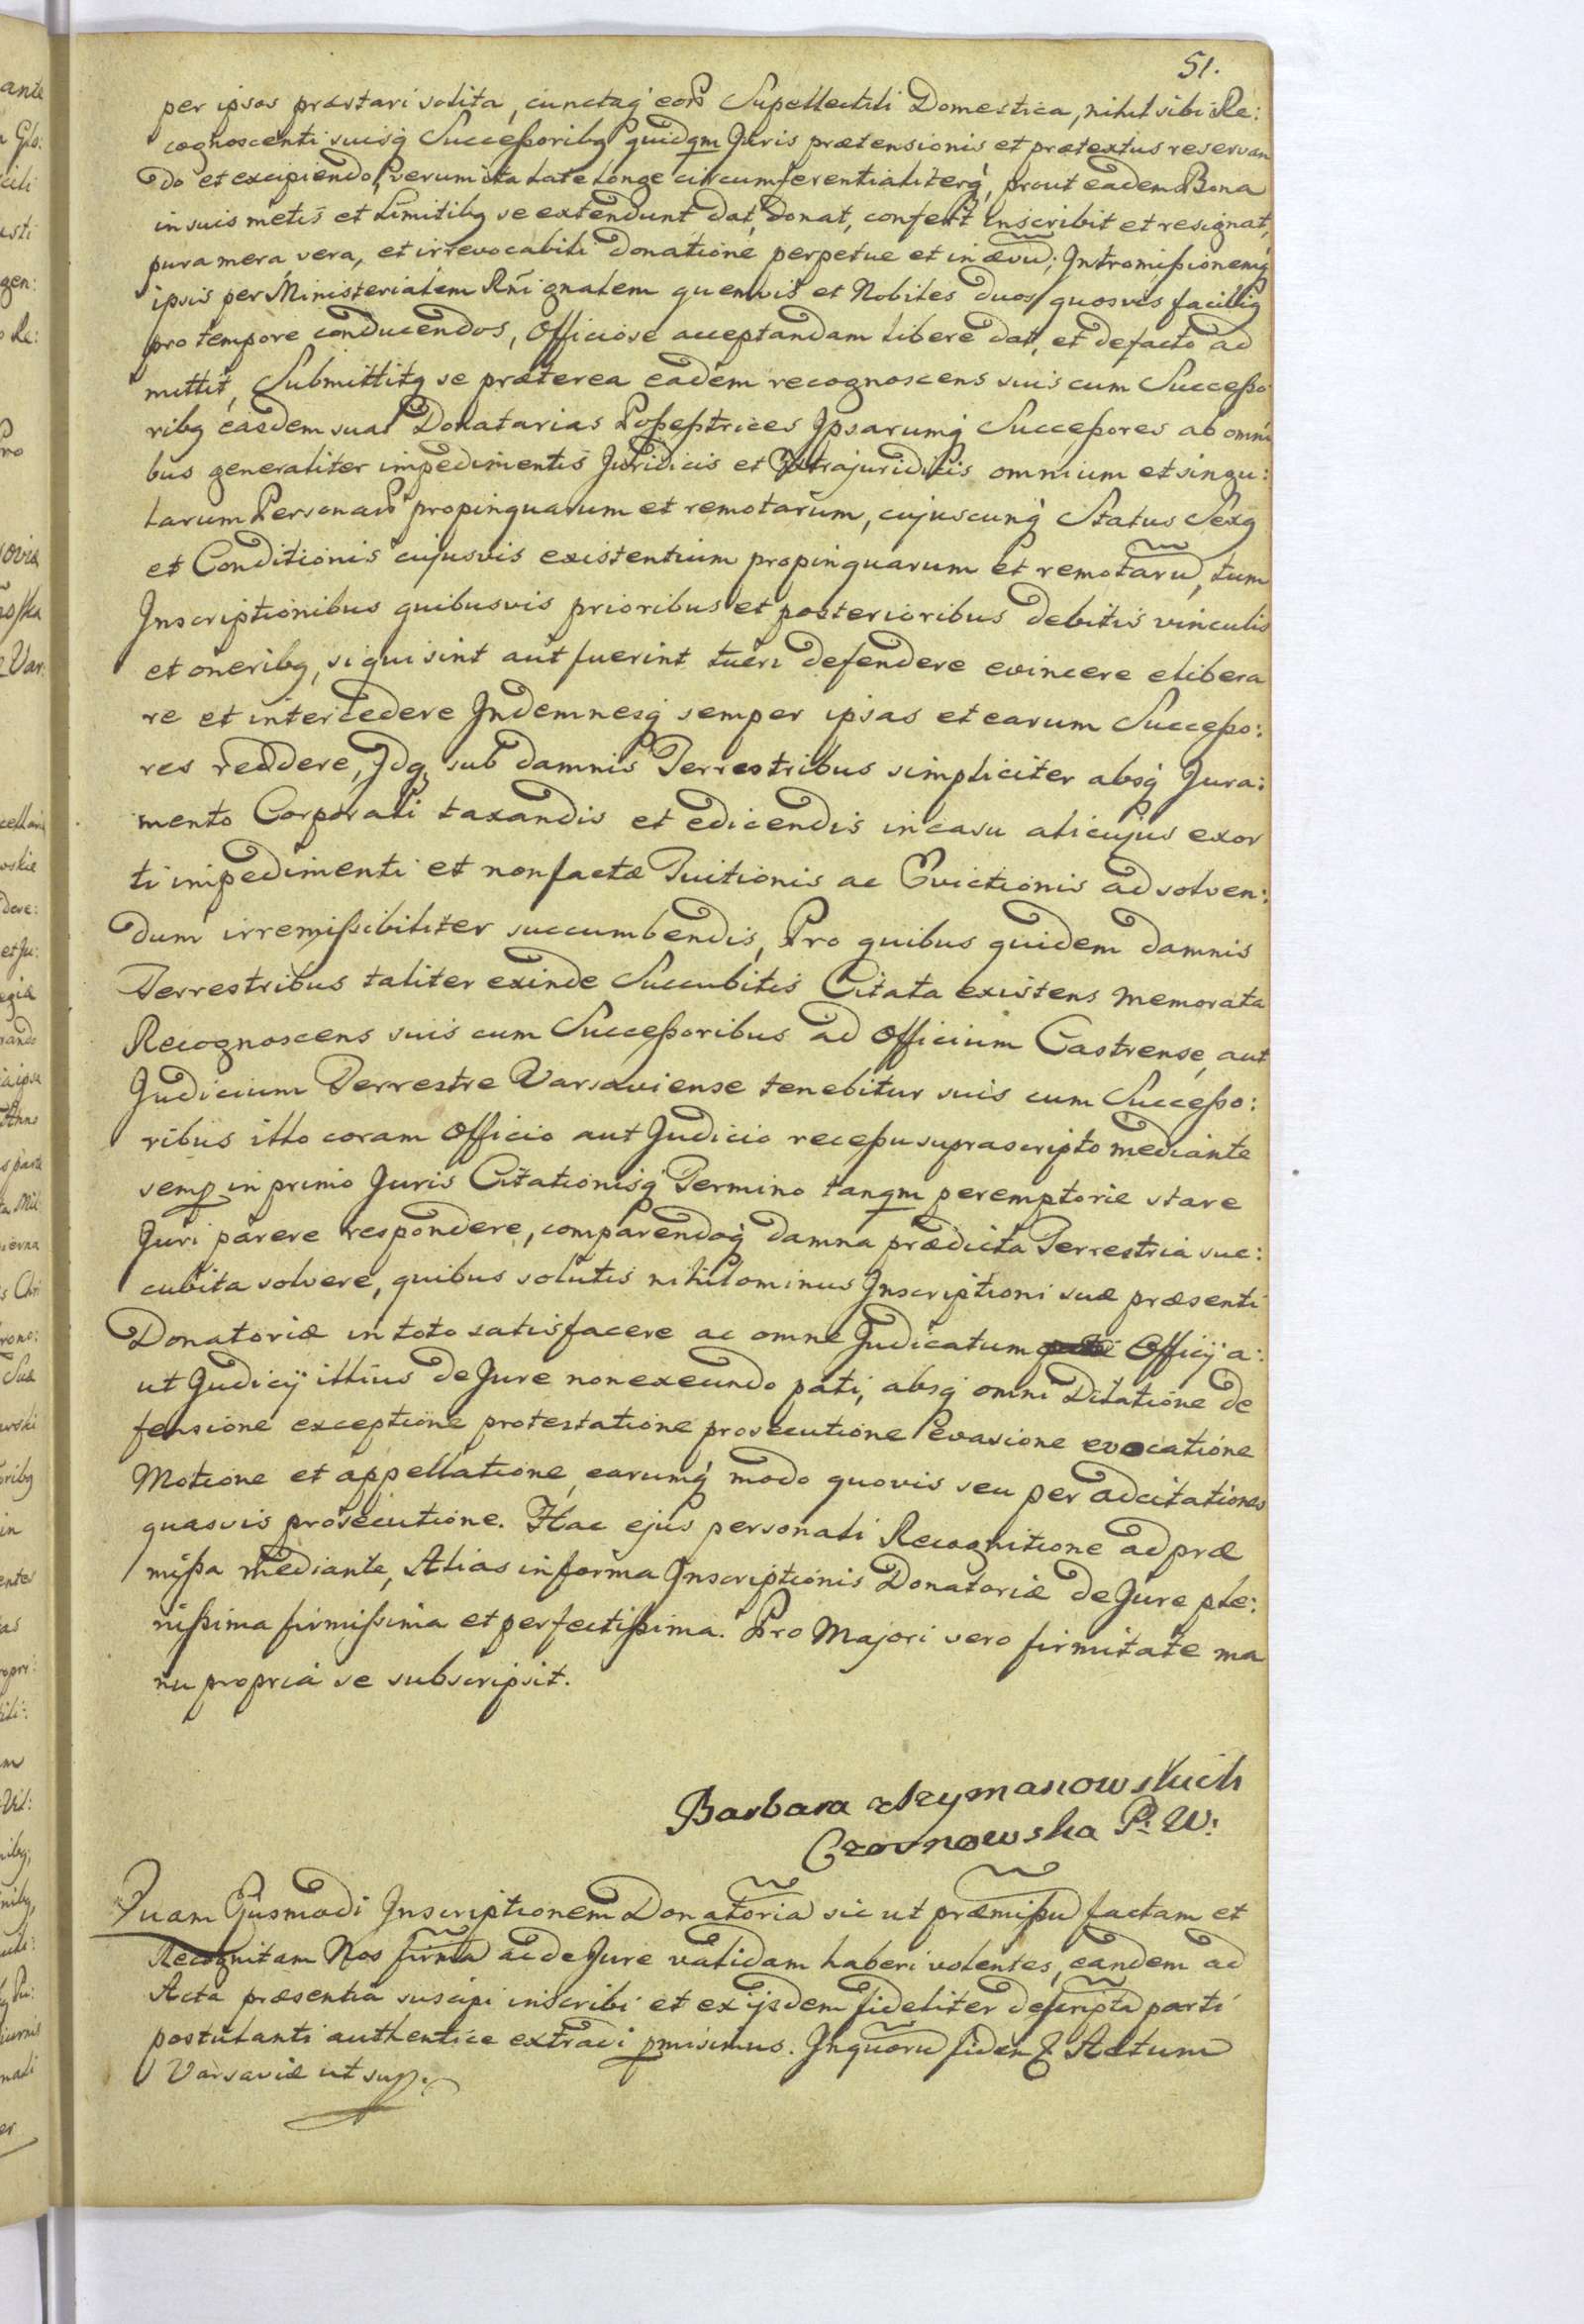 51.
per ipsos præstari solita, cunctaq́ eor Supellectili Domestica, nihil sibi Re:
cognoscenti suisq́ Succeßoribg quidqm Juris prætensionis et prætextus reservan
do et excipiendo, verum ita late longe circumferentialiterq́, prout eadem Bona
in suis metis et Limitibg se extendunt dat, donat, confert Inscribit et resignat,
pura mera vera, et irrevocabili donatione perpetue et in ævũ; Intromißionemq́
ipsis per Ministerialem Rñi gnalem quemvis et Nobiles duos quosvis facilig
pro tempore conducendos, Officiose acceptandam libere dat, et de facto ad
mittit, Submittitq se præterea eadem recognoscens suis cum Succeßo
ribg easdem suas Donatarias Poßeßtrices Ipsarumq́ Succeßores ab omni
bus generaliter impedimentis Juridicis et Extrajuridicis omnium et singu:
larum Personar propinquarum et remotarum, cujuscunq́ Status Sexg
et Conditionis cujusvis existentium propinquarum et remotarũ, tum
Inscriptionibus quibusvis prioribus et posterioribus debitis vinculis
et oneribg, si qui sint aut fuerint tueri defendere evincere elibera
re et intercedere Indemnesq́ semper ipsas et earum Succeßo:
res reddere, Idq, sub damnis Terrestribus simpliciter absq́ Jura:
mento Corporali taxandis et edicendis in casu alicujus exor
ti impedimenti et non factæ Tuitionis ac Evictionis ad solven:
dum irremißibiliter succumbendis, Pro quibus quidem damnis
Terrestribus taliter exinde Succubitis Citata existens memorata
Recognoscens suis cum Succeßoribus ad Officium Castrense, aut
Judicium Terrestre Varsaviense tenebitur suis cum Succeßo:
ribus illo coram Officio aut Judicio receßu suprascripto mediante
semp in primo Juris Citationisq́ Termino tanqm peremptorie stare
Juri parere respondere, comparendoq́ damna prædicta Terrestria suc:
cubita solvere, quibus solutis nihilominus Inscriptioni suæ præsenti
Donatoriæ in toto satisfacere ac omne Judicatum Officij a:
ut Judicij illius de Jure non exeundo pati, absq́ omni Dilatione de
fensione exceptione protestatione prosecutione evasione evocatione
Motione et appellatione, earumq́ modo quovis seu per adcitationes
quasvis prosecutione. Hac ejus personali Recognitione ad præ
mißa mediante, Alias in forma Inscriptionis Donatoriæ de Jure ple:
nißima firmißima et perfectißima. Pro Majori vero firmitate ma
nu propria se subscripsit.
Barbara z Szymanowskich
Czosnowska P: W:
Quam Ejusmodi Inscriptionem Donatoriã sic ut præmißũ factam et
Recognitam Nos firmã ac de Jure validam haberi volentes, eandem ad
Acta præsentia suscipi inscribi et ex ijsdem fideliter descriptã parti
postulanti authentice extradi pmisimus. In quorũ fidem & Actum
Varsaviæ ut sup.